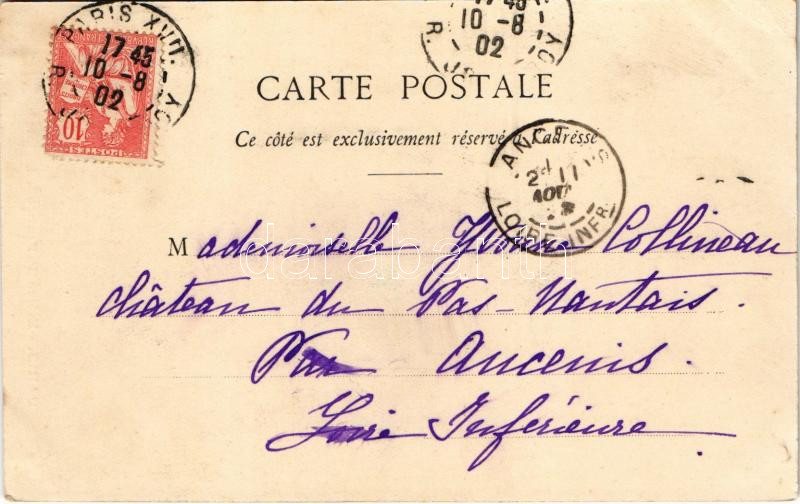 PARIS XVII.
17 45
10 -8
02
17 45
10 -8
02
10
POSTES
CARTE POSTALE
Ce côté est exclusivement réservé à l'adresse
ANCENIS
2
11
AOUT
LOIRE-INFRE
Mademoiselle Yvonne Collineau
château du Pas-Nantais.
Par Ancenis.
Loire Inférieure
darabanth